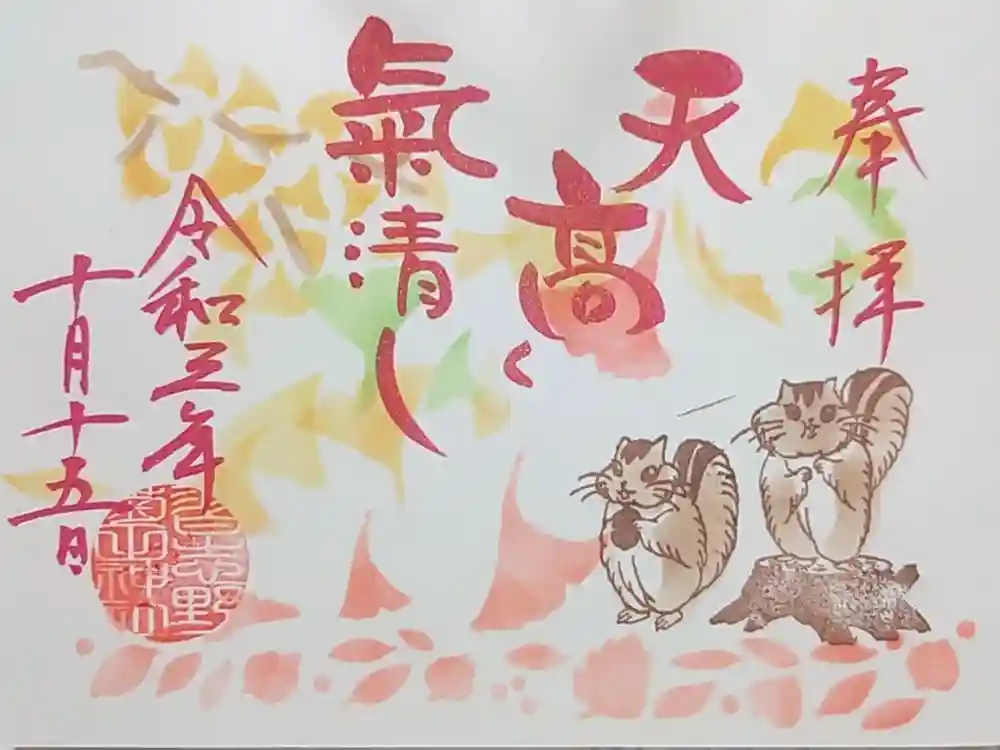 奉拝
天高く
氣清し
令和三年
十月十五日